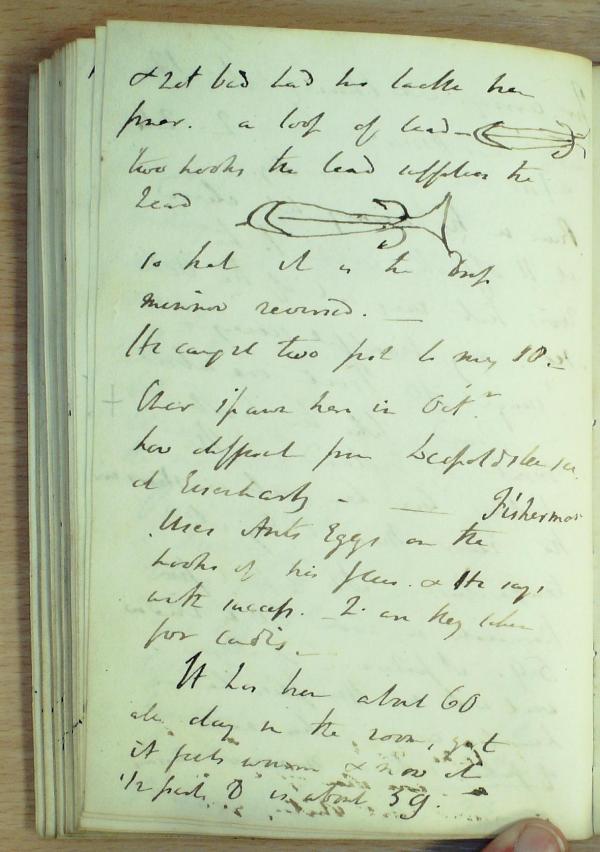 & let bad had his tackle been
finer. a loop of lead -
two hooks the lead supplies the
head
so that it is the Brass
minnow reversed. —
He caught two fish to my 10. -
Char spawn here in Octr.
how different from Leopoldstein
at Eisenhartz - —
Fisherman
Uses Ants Eggs on the
hooks of his flies. & He says
with success. I. on they taken
for cadis. -
It has been about 60
all day in the room, yet
it feels warm & now at
1/2 past 8 is about 59. -